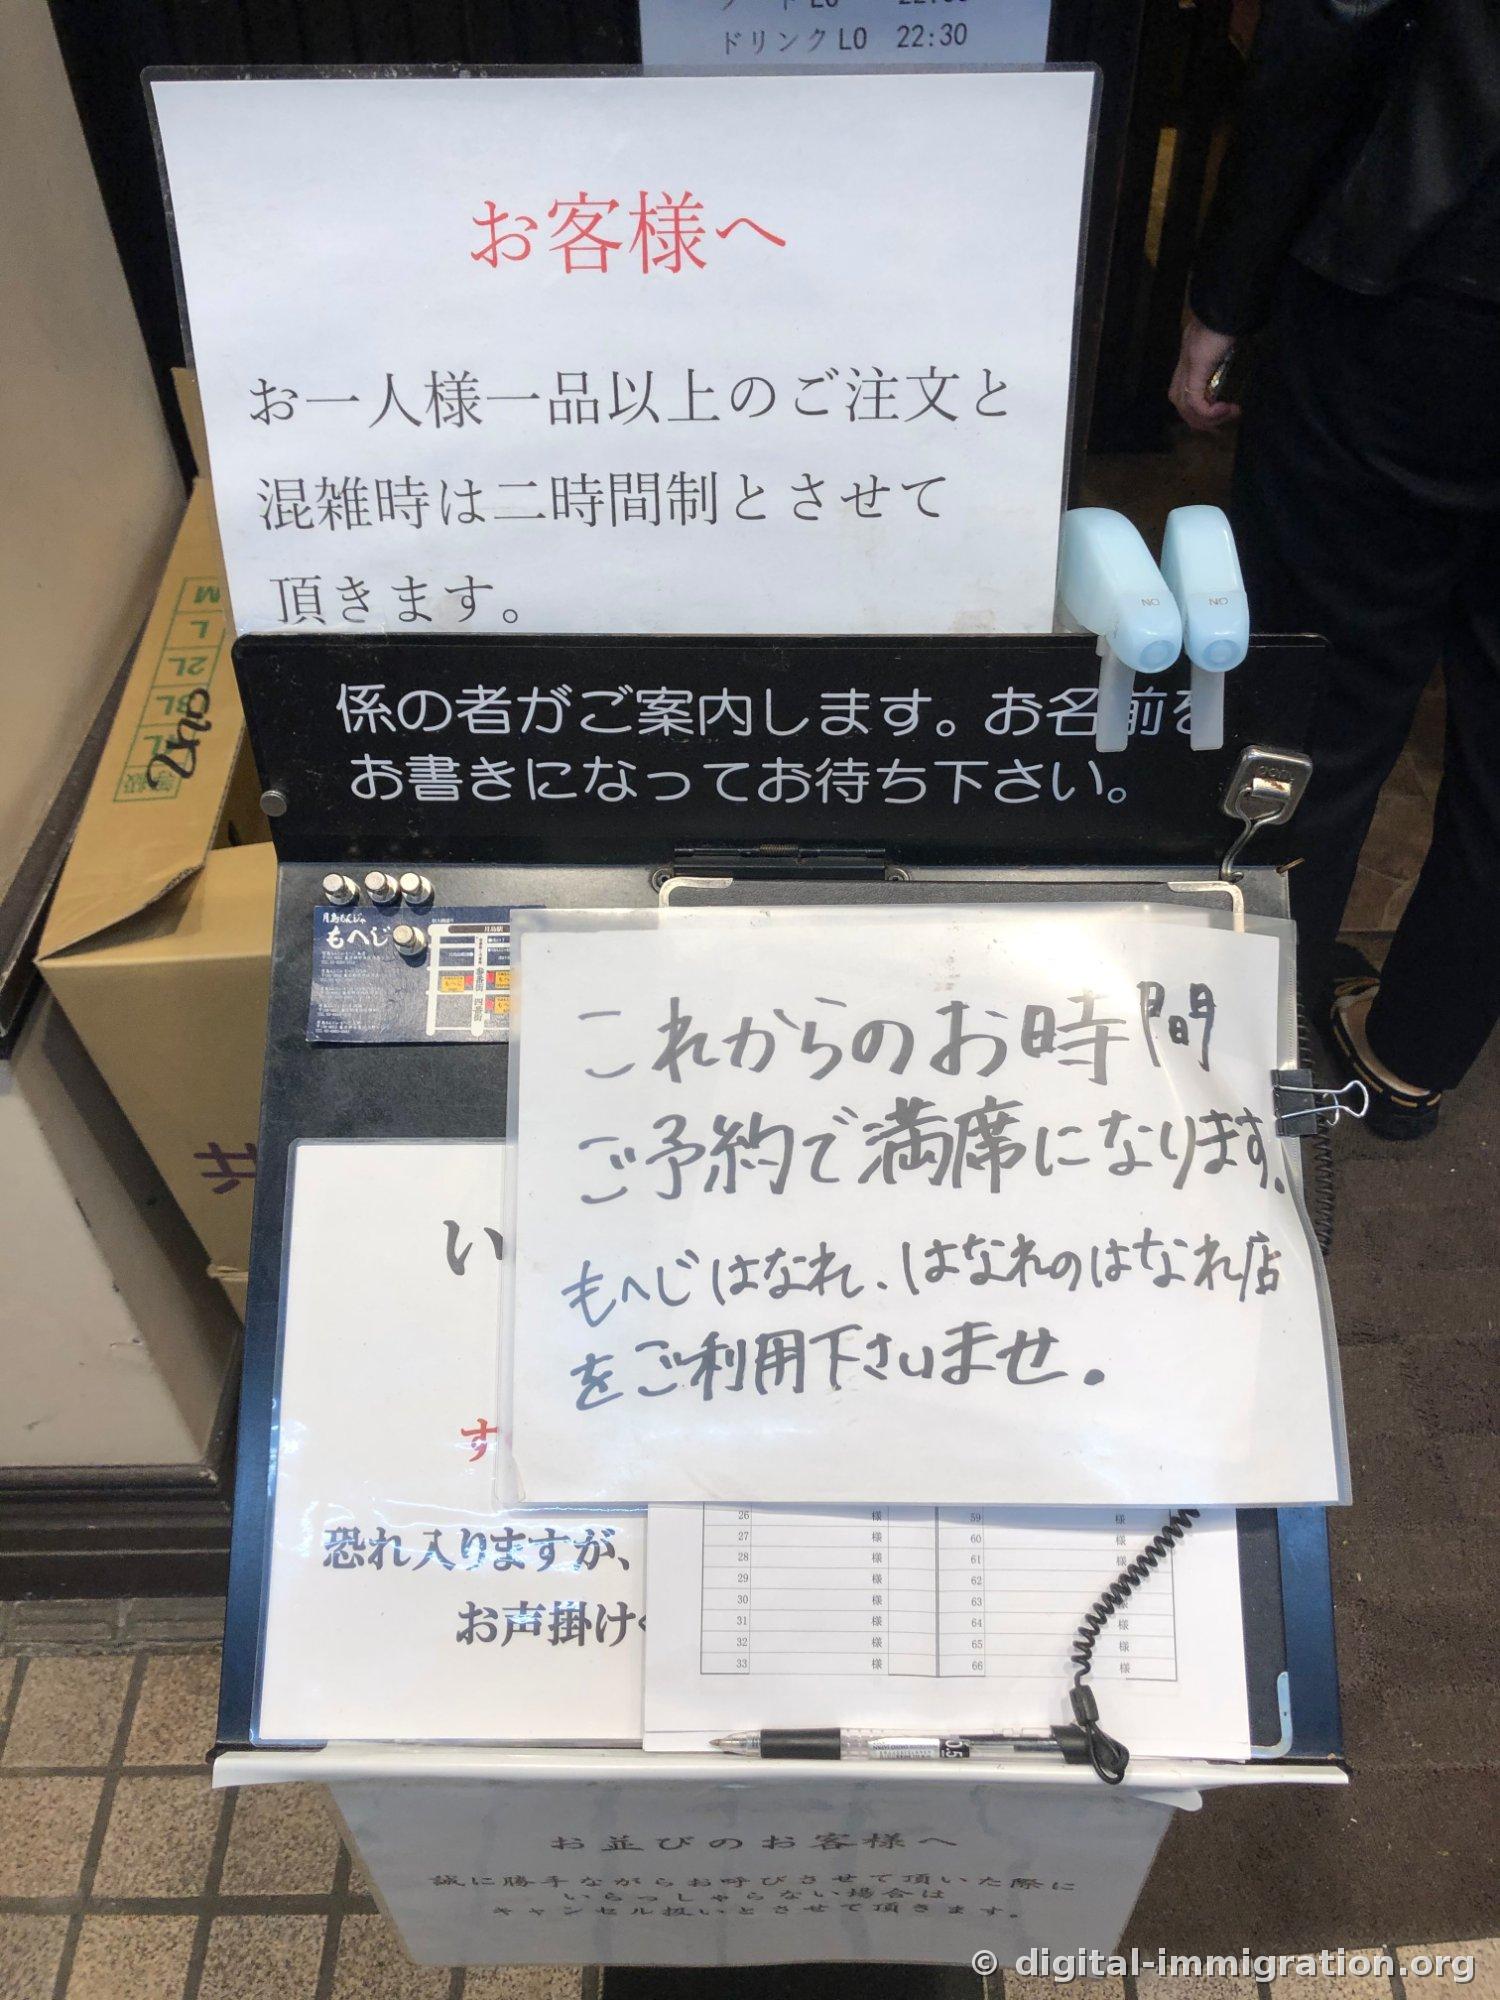 ドリンクLO 22:30
お客様へ
お一人様一品以上のご注文と
混雑時は二時間制とさせて
頂きます。
係の者がご案内します。お名前を
お書きになってお待ち下さい。
月島もんじゃ
もへじ
これからのお時間
ご予約で満席になります。
もへじはなれ、はなれのはなれ店
をご利用下さいませ。
い
す
恐れ入りますが、
お声掛け
26 様 59 様
27 様 60 様
28 様 61 様
29 様 62 様
30 様 63 様
31 様 64 様
32 様 65 様
33 様 66 様
0.5
お並びのお客様へ
誠に勝手ながらお呼びさせて頂いた際に
いらっしゃらない場合は
キャンセル扱いとさせて頂きます。
M
L
2L
ON
ON
© digital-immigration.org